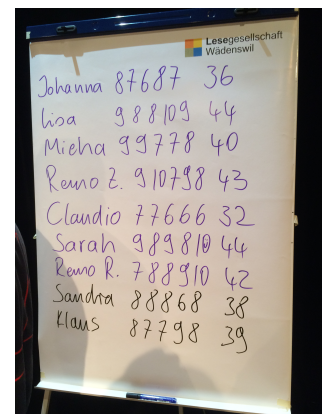 Lesegesellschaft
Wädenswil
Johanna 87687 36
Lisa 988109 44
Micha 99778 40
Remo Z. 910798 43
Claudio 77666 32
Sarah 989810 44
Remo R. 788910 42
Sandra 88868 38
Klaus 87798 39